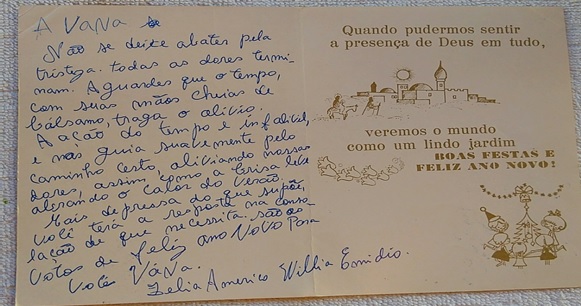 A VANA
Não se deixe abater pela
tristeza. todas as dores termi-
nam. Aguardes que o tempo,
com suas mãos cheias de
bálsamo, traga o alívio.
A ação do tempo e infalivel,
e nos guia suavemente pelo
caminho certo, aliviando nossas
dores, assim como a brisa leve
o calor do verão.
Mais depressa do que supõe,
você terá a resposta na conso-
lação de que necessita. são os
votos de feliz ano Novo Para
você VÁNA.
Zelia Americo Willia Emidio.
Quando pudermos sentir
a presença de Deus em tudo,
veremos o mundo
como um lindo jardim
BOAS FESTAS E
FELIZ ANO NOVO!